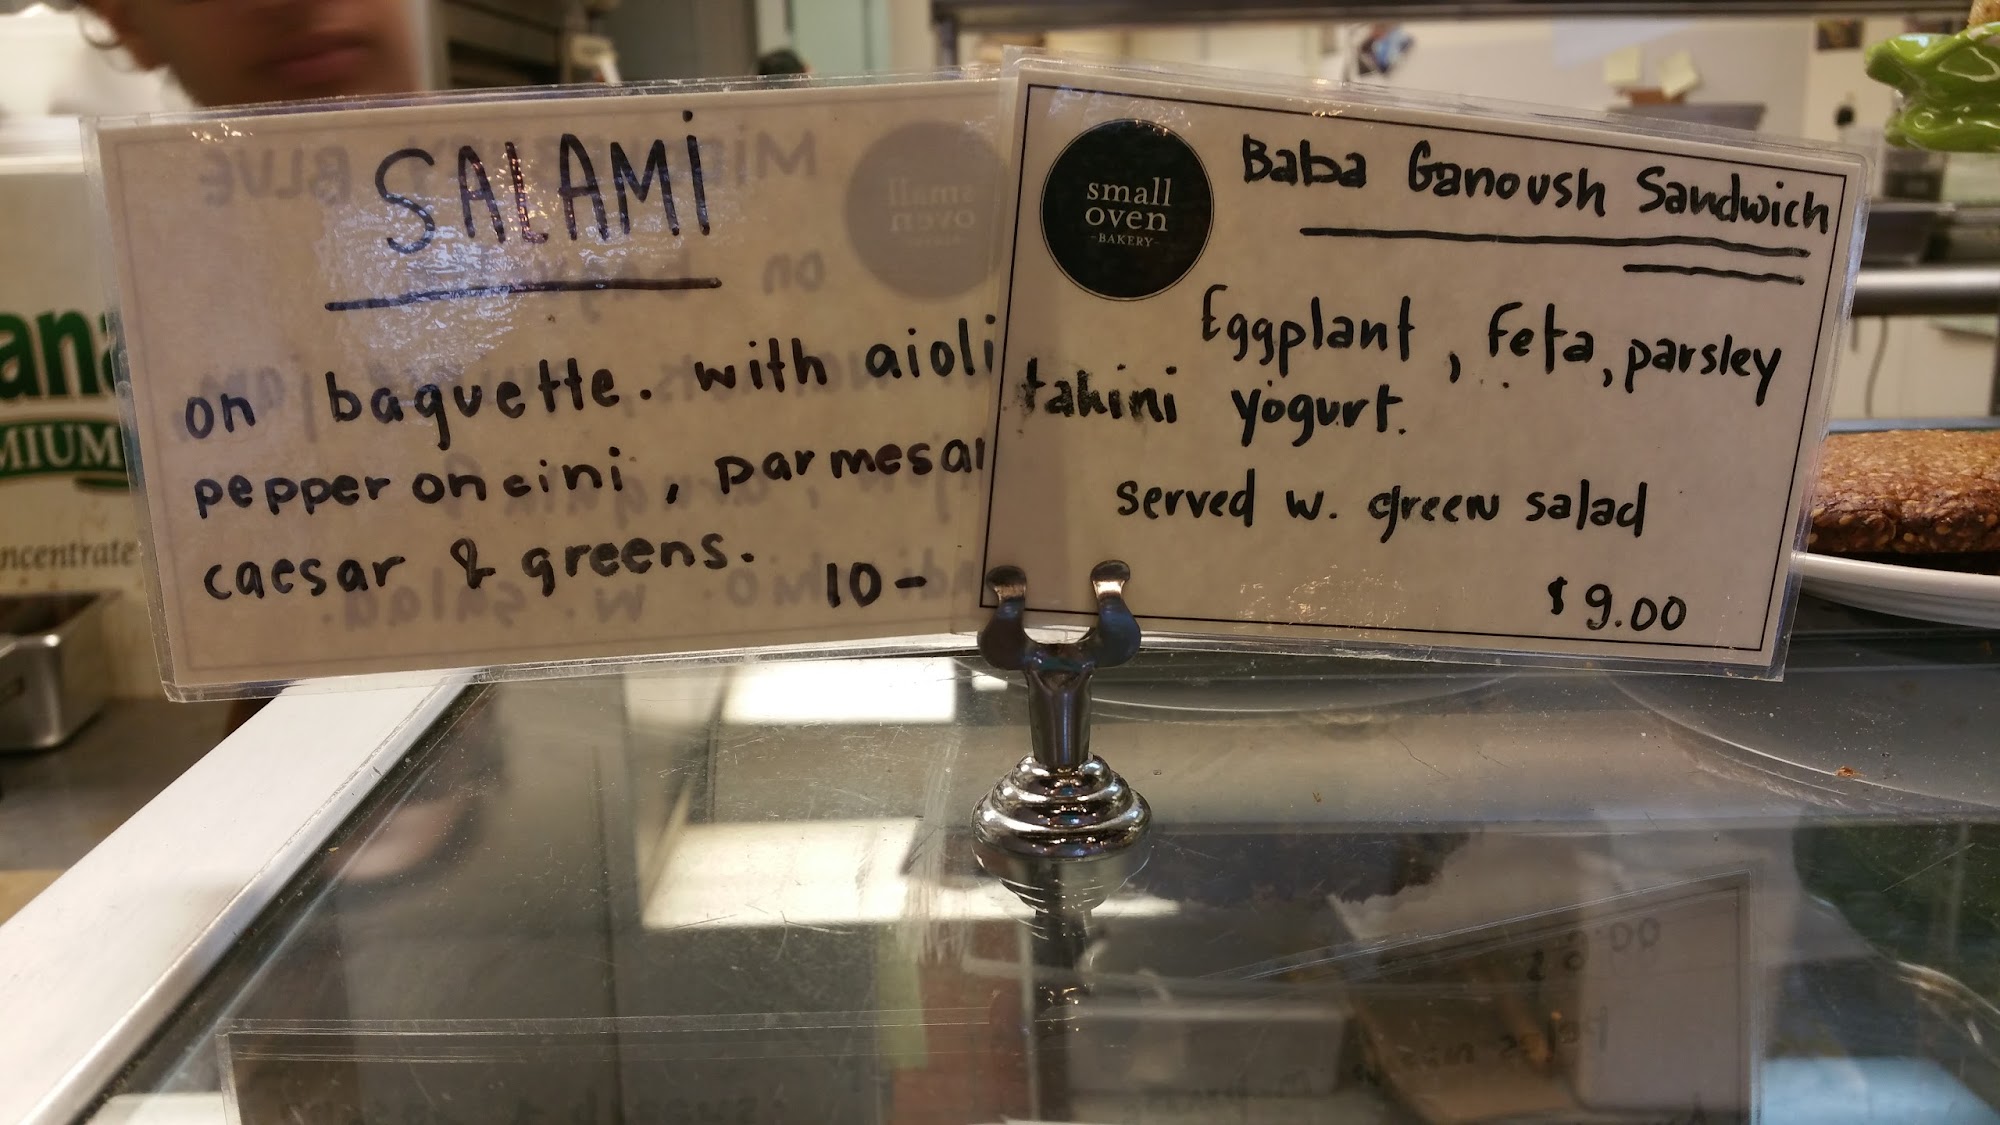 SALAMI
on baguette. with aioli
pepperoncini, parmesan
caesar & greens.
10-
small
oven
-BAKERY-
Baba Ganoush Sandwich
Eggplant, feta, parsley
tahini yogurt.
served w. green salad
$9.00